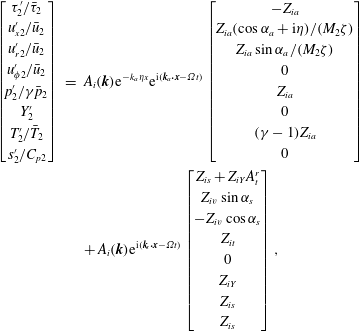 \begin{bmatrix} \tau_2'/\bar{\tau}_2 \\ u_{x2}'/\bar{u}_2 \\ u_{r2}'/\bar{u}_2 \\ u_{\phi 2}'/\bar{u}_2 \\ p_2'/\gamma\bar{p}_2 \\ Y_2' \\ T_2'/\bar{T}_2 \\ s_2'/C_{p2} \end{bmatrix} = A_i(\boldsymbol{k}) \mathrm{e}^{-k_a \eta x} \mathrm{e}^{\mathrm{i}(\boldsymbol{k}_a \cdot \boldsymbol{x} - \Omega t)} \begin{bmatrix} -Z_{ia} \\ Z_{ia}(\cos\alpha_a + \mathrm{i}\eta)/(M_2\zeta) \\ Z_{ia}\sin\alpha_a/(M_2\zeta) \\ 0 \\ Z_{ia} \\ 0 \\ (\gamma - 1)Z_{ia} \\ 0 \end{bmatrix}
+ A_i(\boldsymbol{k}) \mathrm{e}^{\mathrm{i}(\boldsymbol{k}_s \cdot \boldsymbol{x} - \Omega t)} \begin{bmatrix} Z_{is} + Z_{iY}A_t^r \\ Z_{iv}\sin\alpha_s \\ -Z_{iv}\cos\alpha_s \\ Z_{it} \\ 0 \\ Z_{iY} \\ Z_{is} \\ Z_{is} \end{bmatrix},